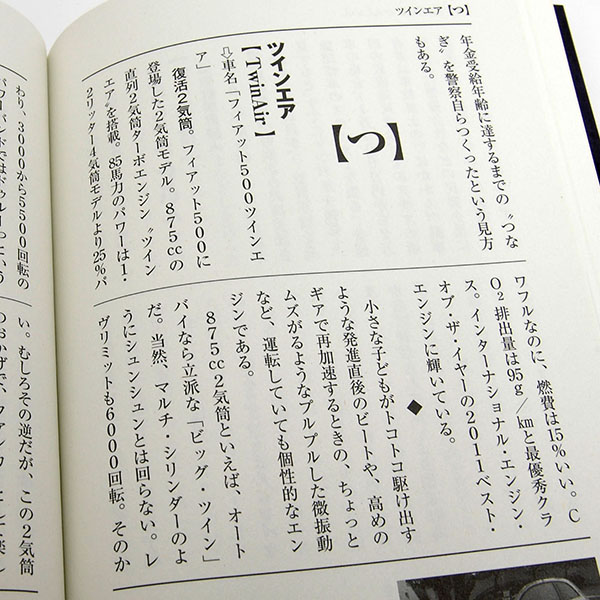 ツインエア【つ】
年金受給年齢に達するまでの〝つな
ぎ〟を警察自らつくったという見方
もある。
【つ】
ツインエア
【TwinAir】
⇨車名「フィアット500ツインエ
ア」
復活2気筒。フィアット500に
登場した2気筒モデル。875ccの
直列2気筒ターボエンジン〝ツイン
エア〟を搭載。85馬力のパワーは1・
2リッター4気筒モデルより25%パ
ワフルなのに、燃費は15%いい。C
O2排出量は95g/kmと最優秀クラ
ス。インターナショナル・エンジン・
オブ・ザ・イヤーの2011ベスト・
エンジンに輝いている。
◆
小さな子どもがトコトコ駆け出す
ような発進直後のビートや、高めの
ギアで再加速するときの、ちょっと
ムズがるようなプルプルした微振動
など、運転していても個性的なエン
ジンである。
875cc2気筒といえば、オート
バイなら立派な「ビッグ・ツイン」
だ。当然、マルチ・シリンダーのよ
うにシュンシュンとは回らない。レ
ヴリミットも6000回転。そのか
わり、3000から5500回転の
い。むしろその逆だが、この2気筒